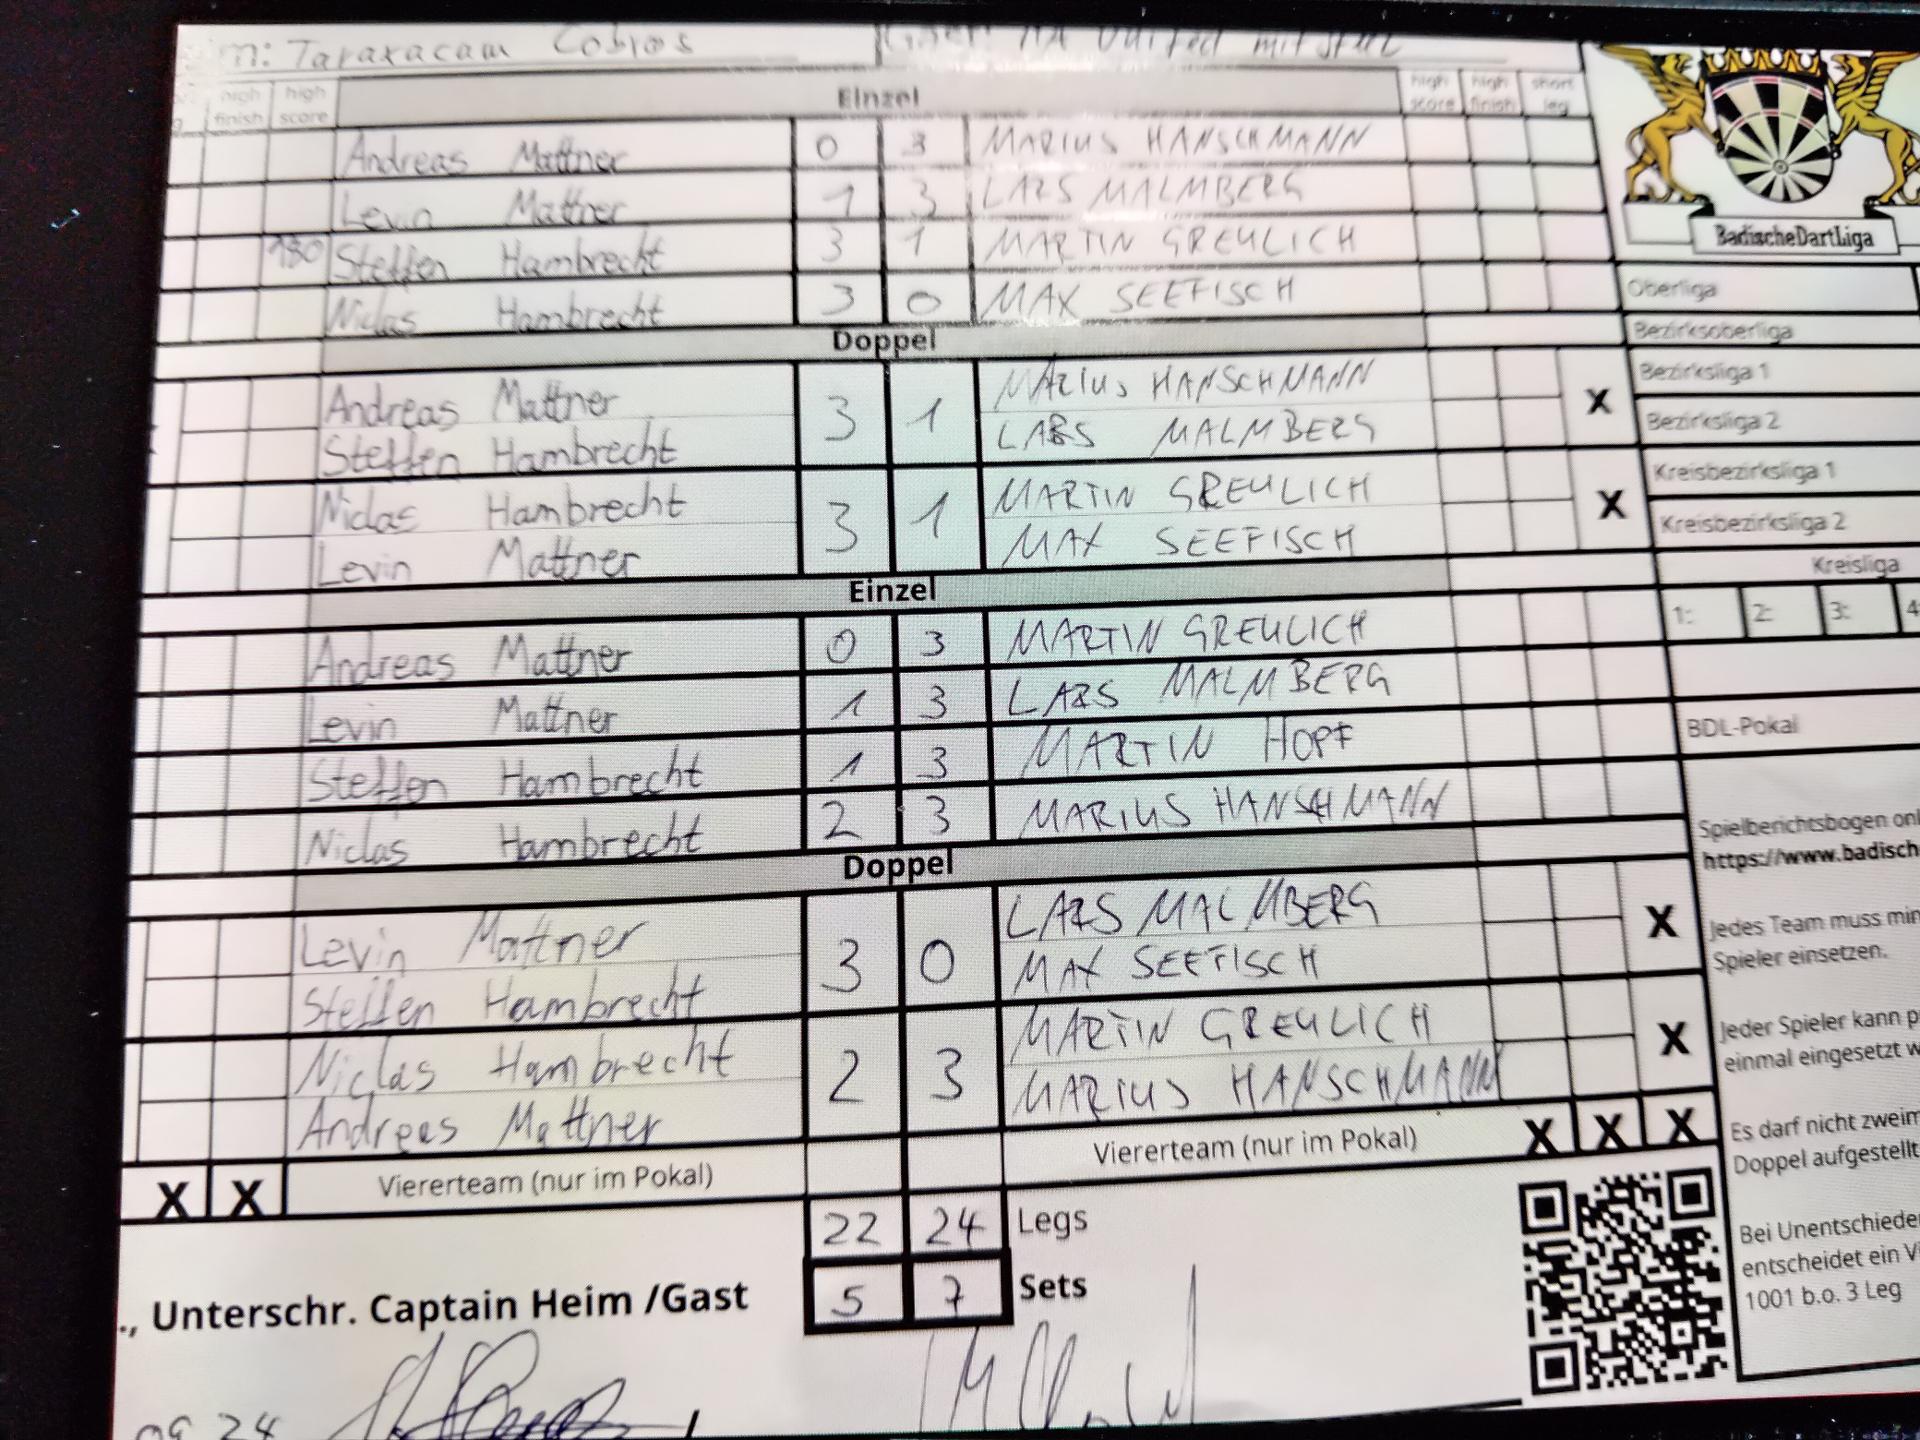 m: Taraxacam Cobras Gast: MA United mit Steel
high finish high score Einzel high score high finish short leg
Andreas Mattner 0 3 MARIUS HANSCHMANN
Levin Mattner 1 3 LARS MALMBERG
180 Steffen Hambrecht 3 1 MARTIN GREULICH
Niclas Hambrecht 3 0 MAX SEEFISCH
Doppel
Andreas Mattner 3 1 MARIUS HANSCHMANN
Steffen Hambrecht LARS MALMBERG
X
Niclas Hambrecht 3 1 MARTIN GREULICH
Levin Mattner MAX SEEFISCH
X
Einzel
Andreas Mattner 0 3 MARTIN GREULICH
Levin Mattner 1 3 LARS MALMBERG
Steffen Hambrecht 1 3 MARTIN HOPF
Niclas Hambrecht 2 3 MARIUS HANSCHMANN
Doppel
Levin Mattner 3 0 LARS MALMBERG
Steffen Hambrecht MAX SEEFISCH
X
Niclas Hambrecht 2 3 MARTIN GREULICH
Andreas Mattner MARIUS HANSCHMANN
X
X X Viererteam (nur im Pokal) Viererteam (nur im Pokal) X X X
22 24 Legs
5 7 Sets
., Unterschr. Captain Heim /Gast
09.24
BadischeDartLiga
Oberliga
Bezirksoberliga
Bezirksliga 1
Bezirksliga 2
Kreisbezirksliga 1
Kreisbezirksliga 2
Kreisliga
1: 2: 3: 4
BDL-Pokal
Spielberichtsbogen onl
https://www.badisch
Jedes Team muss min
Spieler einsetzen.
Jeder Spieler kann p
einmal eingesetzt w
Es darf nicht zweim
Doppel aufgestellt
Bei Unentschiede
entscheidet ein Vi
1001 b.o. 3 Leg